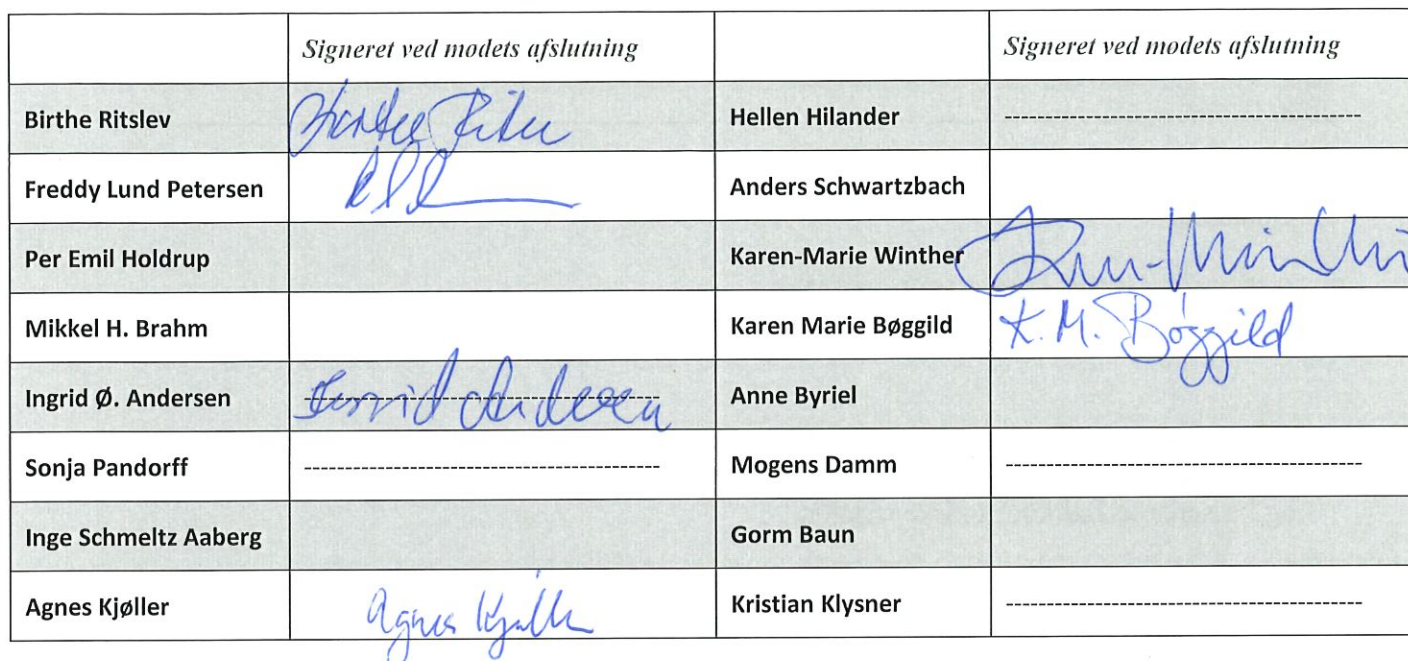 Signeret ved modets afslutning Signeret ved modets afslutning
Birthe Ritslev Hellen Hilander ------------------------------------------
Freddy Lund Petersen Anders Schwartzbach
Per Emil Holdrup Karen-Marie Winther
Mikkel H. Brahm Karen Marie Bøggild K.M. Bøggild
Ingrid Ø. Andersen Ingrid Andersen Anne Byriel
Sonja Pandorff ------------------------------------------ Mogens Damm ------------------------------------------
Inge Schmeltz Aaberg Gorm Baun
Agnes Kjøller Agnes Kjøller Kristian Klysner ------------------------------------------